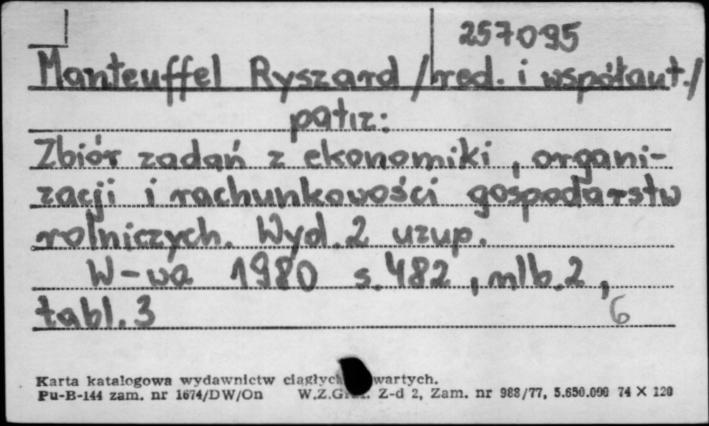 257095
Manteuffel Ryszard /red. i współaut./
patrz:
Zbiór zadań z ekonomiki, organi-
zacji i rachunkowości gospodarstw
rolniczych. Wyd. 2 uzup.
W-wa 1980 s. 482, nlb. 2,
tabl. 3
6
Karta katalogowa wydawnictw ciągłych wartych.
Pu-B-144 zam. nr 1674/DW/On W.Z.G Z-d 2, Zam. nr 988/77, 5.650.000 74 X 120